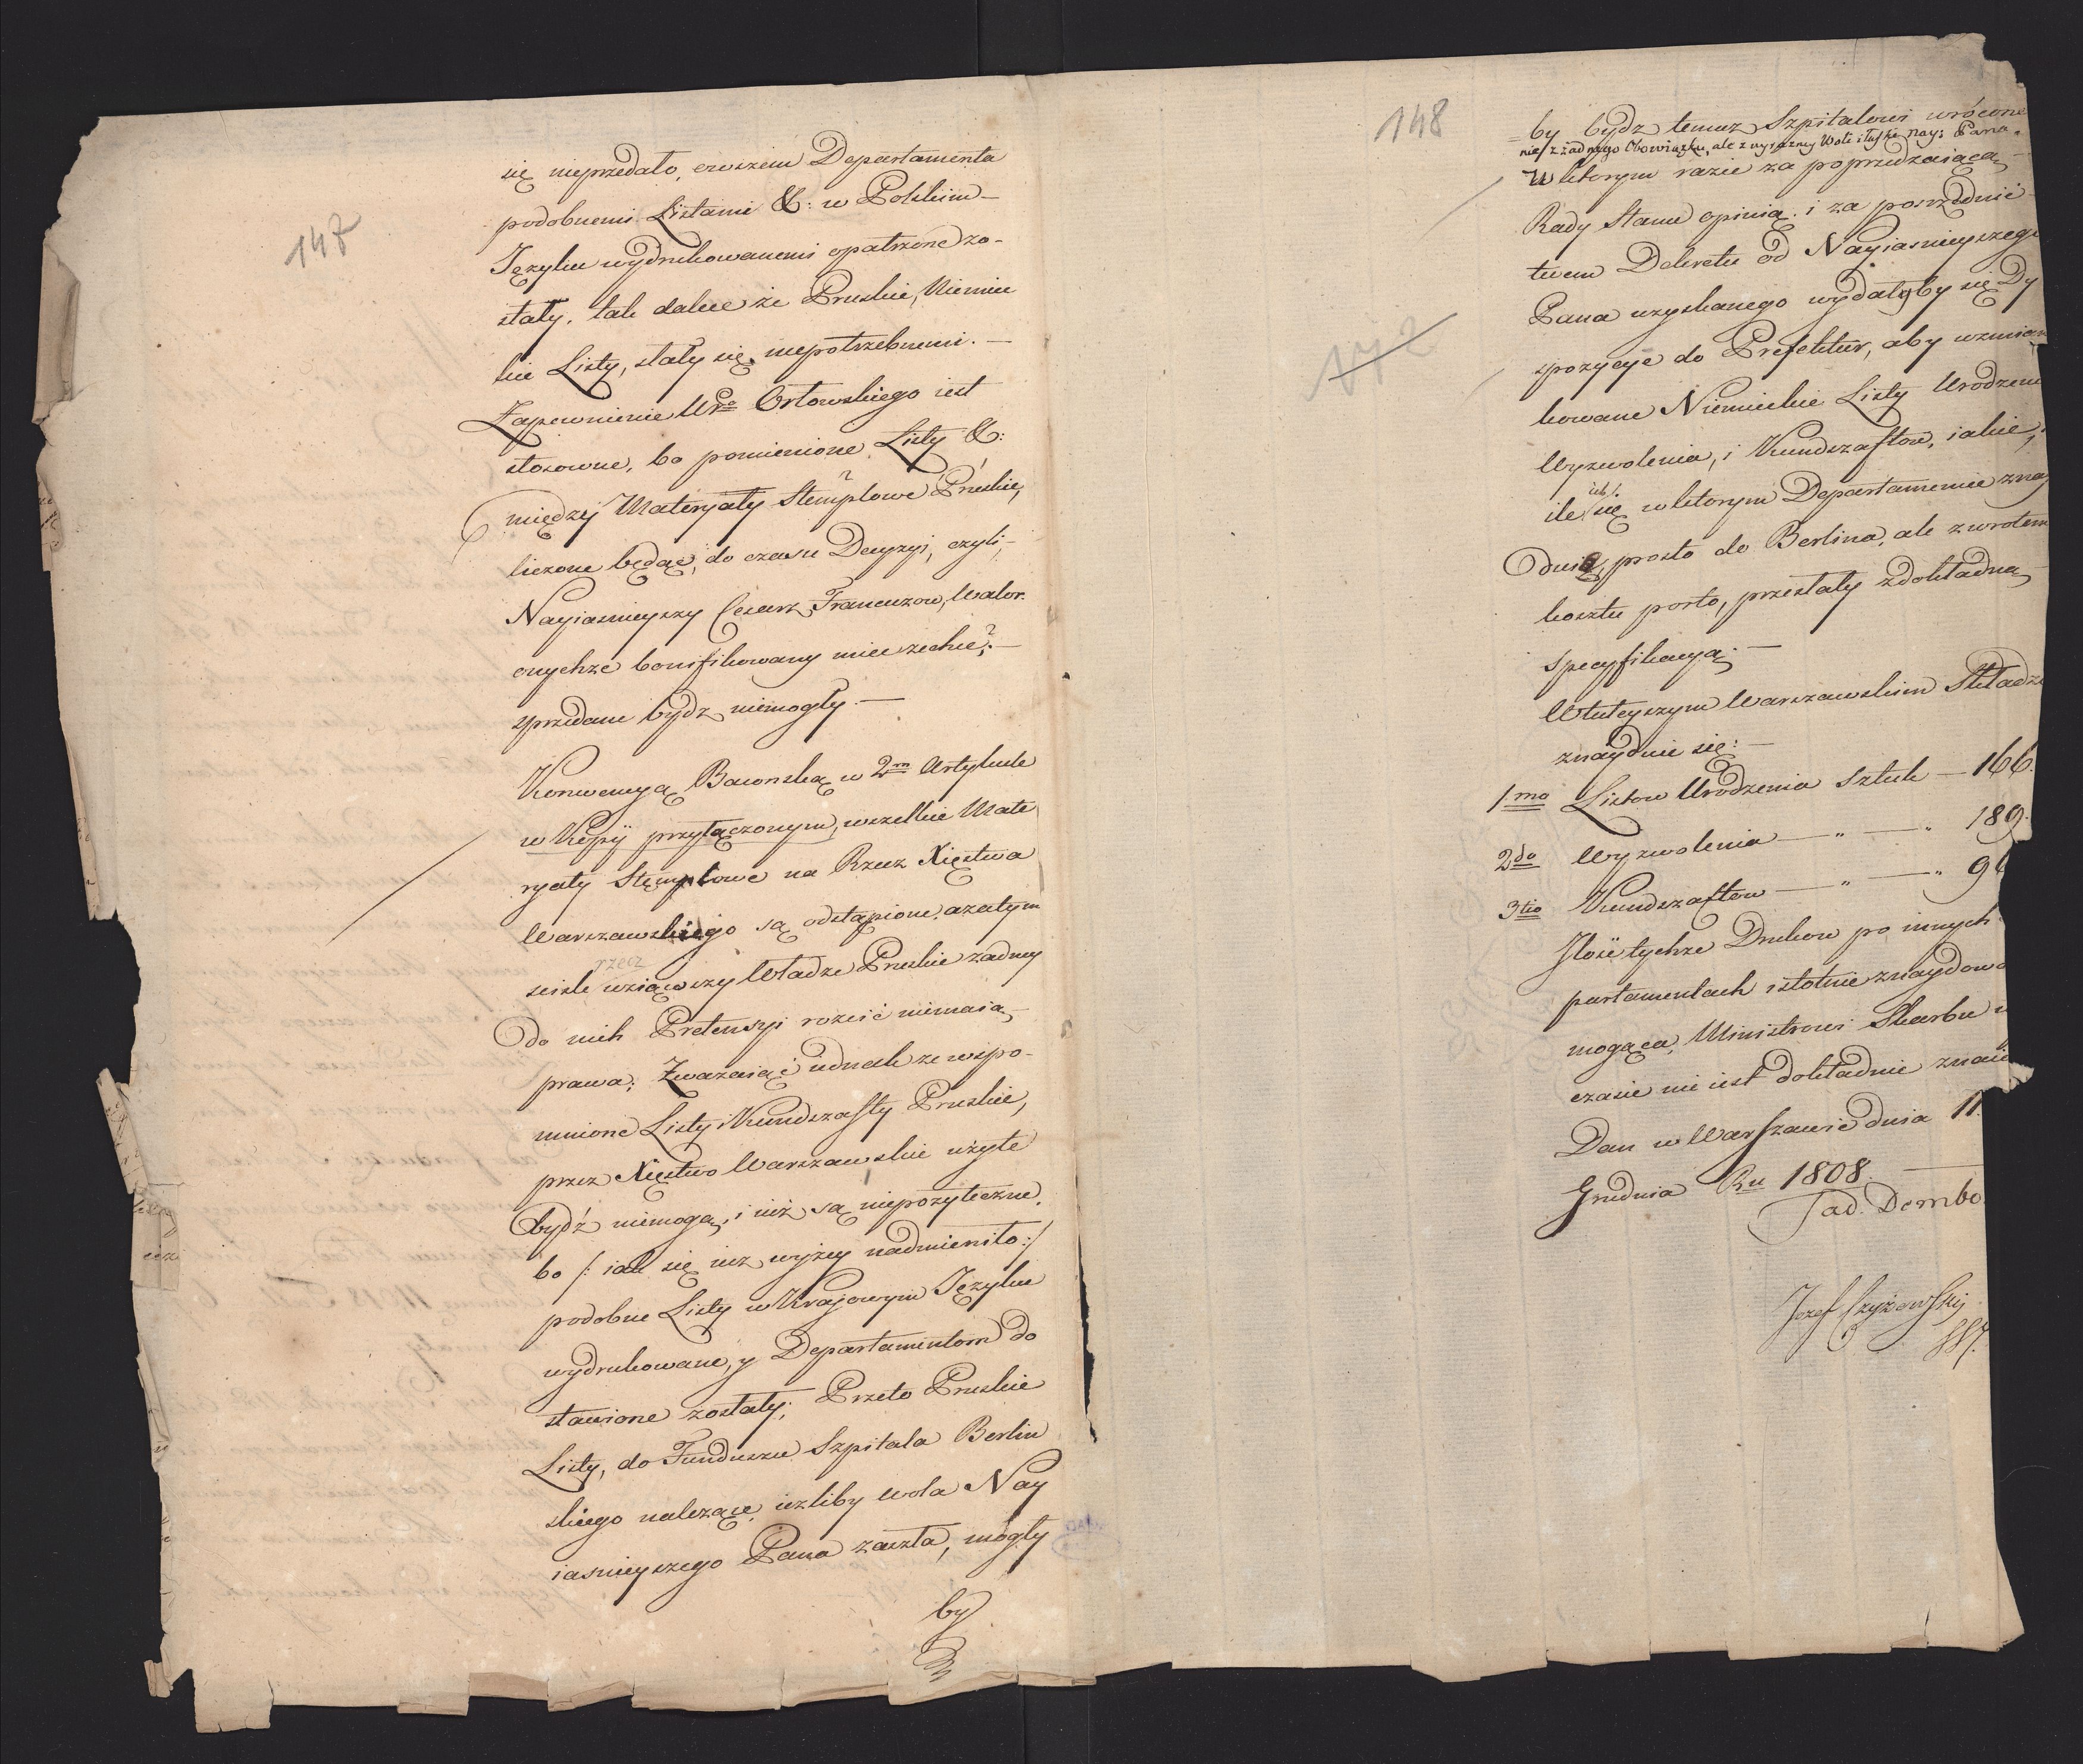 147
się nieprzedało, owszem Departamenta
podobnemi Listami &: w Polskim —
Języku wydrukowanemi opatrzone zo-
stały, tak dalece że Pruskie, Niemiec
kie Listy, stały się niepotrzebnemi. —
Zapewnienie Uro Orłowskiego iest
stosowne, bo pomienione Listy &:
między Materyały Stemplowe Pruskie,
liczone będąc, do czasu Decyzyi, czyli-
Nayiasnieyszy Cesarz Francuzow, Walor
onychże bonifikowany mieć zechce?. —
sprzedane bydz niemogły. —
Konwencyą Baionską w 2m Artykule
w Kopÿ przyłączonym, wszelkie Mate
ryały Stęmplowe na Rzecz Xięstwa
Warszawskiego są odstąpione, azatym
rzecz
scisle wziąwszy Władze Pruskie żadney
do nich Pretensyi rościć niemaią
prawa; Zwazaiąc iednak że wspo-
mnione Listy i Kundszafty Pruskie,
przez Xięstwo Warszawskie użyte
bydź niemogą, i iuż są niepożyteczne,
bo /: iak się iuż wyżey nadmieniło :/
podobne Listy w Krajowym Języku
wydrukowane, y Departamentom do
stawione zostały; Przeto Pruskie
Listy, do Funduszu Szpitala Berliń
skiego należące, ieżliby wola Nay
iasnieyszego Pana zaszła, mogły
by
148
by bydz temuz Szpitalowi wrócone
nie z żadnego Obowiązku, ale z wyrazney Woli i łaski Nay: Pana.
W ktorym razie za poprzedzaiącą
Rady Stanu opinią i za posrzednic
twem Dekretu od Nayiasnieyszego
Pana uzyskanego wydałyby się Dy
spozycye do Prefektur, aby wzmian
kowane Niemieckie Listy Urodzenia
Wyzwolenia, i Kundszaftow, iakie,
ich/:
ile się w ktorym Departamencie znay
duią, prosto do Berlina, ale zwrotem
kosztu porto, przesłały z dokładną
specyfikacyą. —
W tuteyszym Warszawskim Składzie
znayduie się: —
1mo Listow Urodzenia Sztuk — 166.
2do Wyzwolenia — " — " 189.
3tio Kundszaftow — " — " 96
Ilość tychże Drukow po innych
partamentach istotnie znaydowa
mogąca, Ministrowi Skarbu
czasie nie iest dokładnie znaio
Dan w Warszawie dnia 11.
Grudnia Ru 1808.
Tad. Dembo
Jozef Czyżewskj